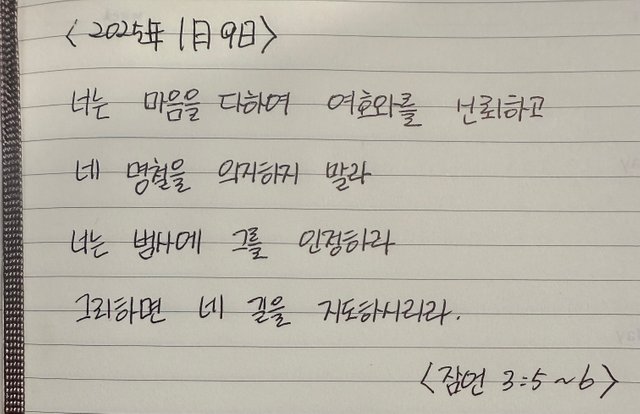 <2025年 1月 9日>
너는 마음을 다하여 여호와를 신뢰하고
네 명철을 의지하지 말라
너는 범사에 그를 인정하라
그리하면 네 길을 지도하시리라.
<잠언 3:5~6>